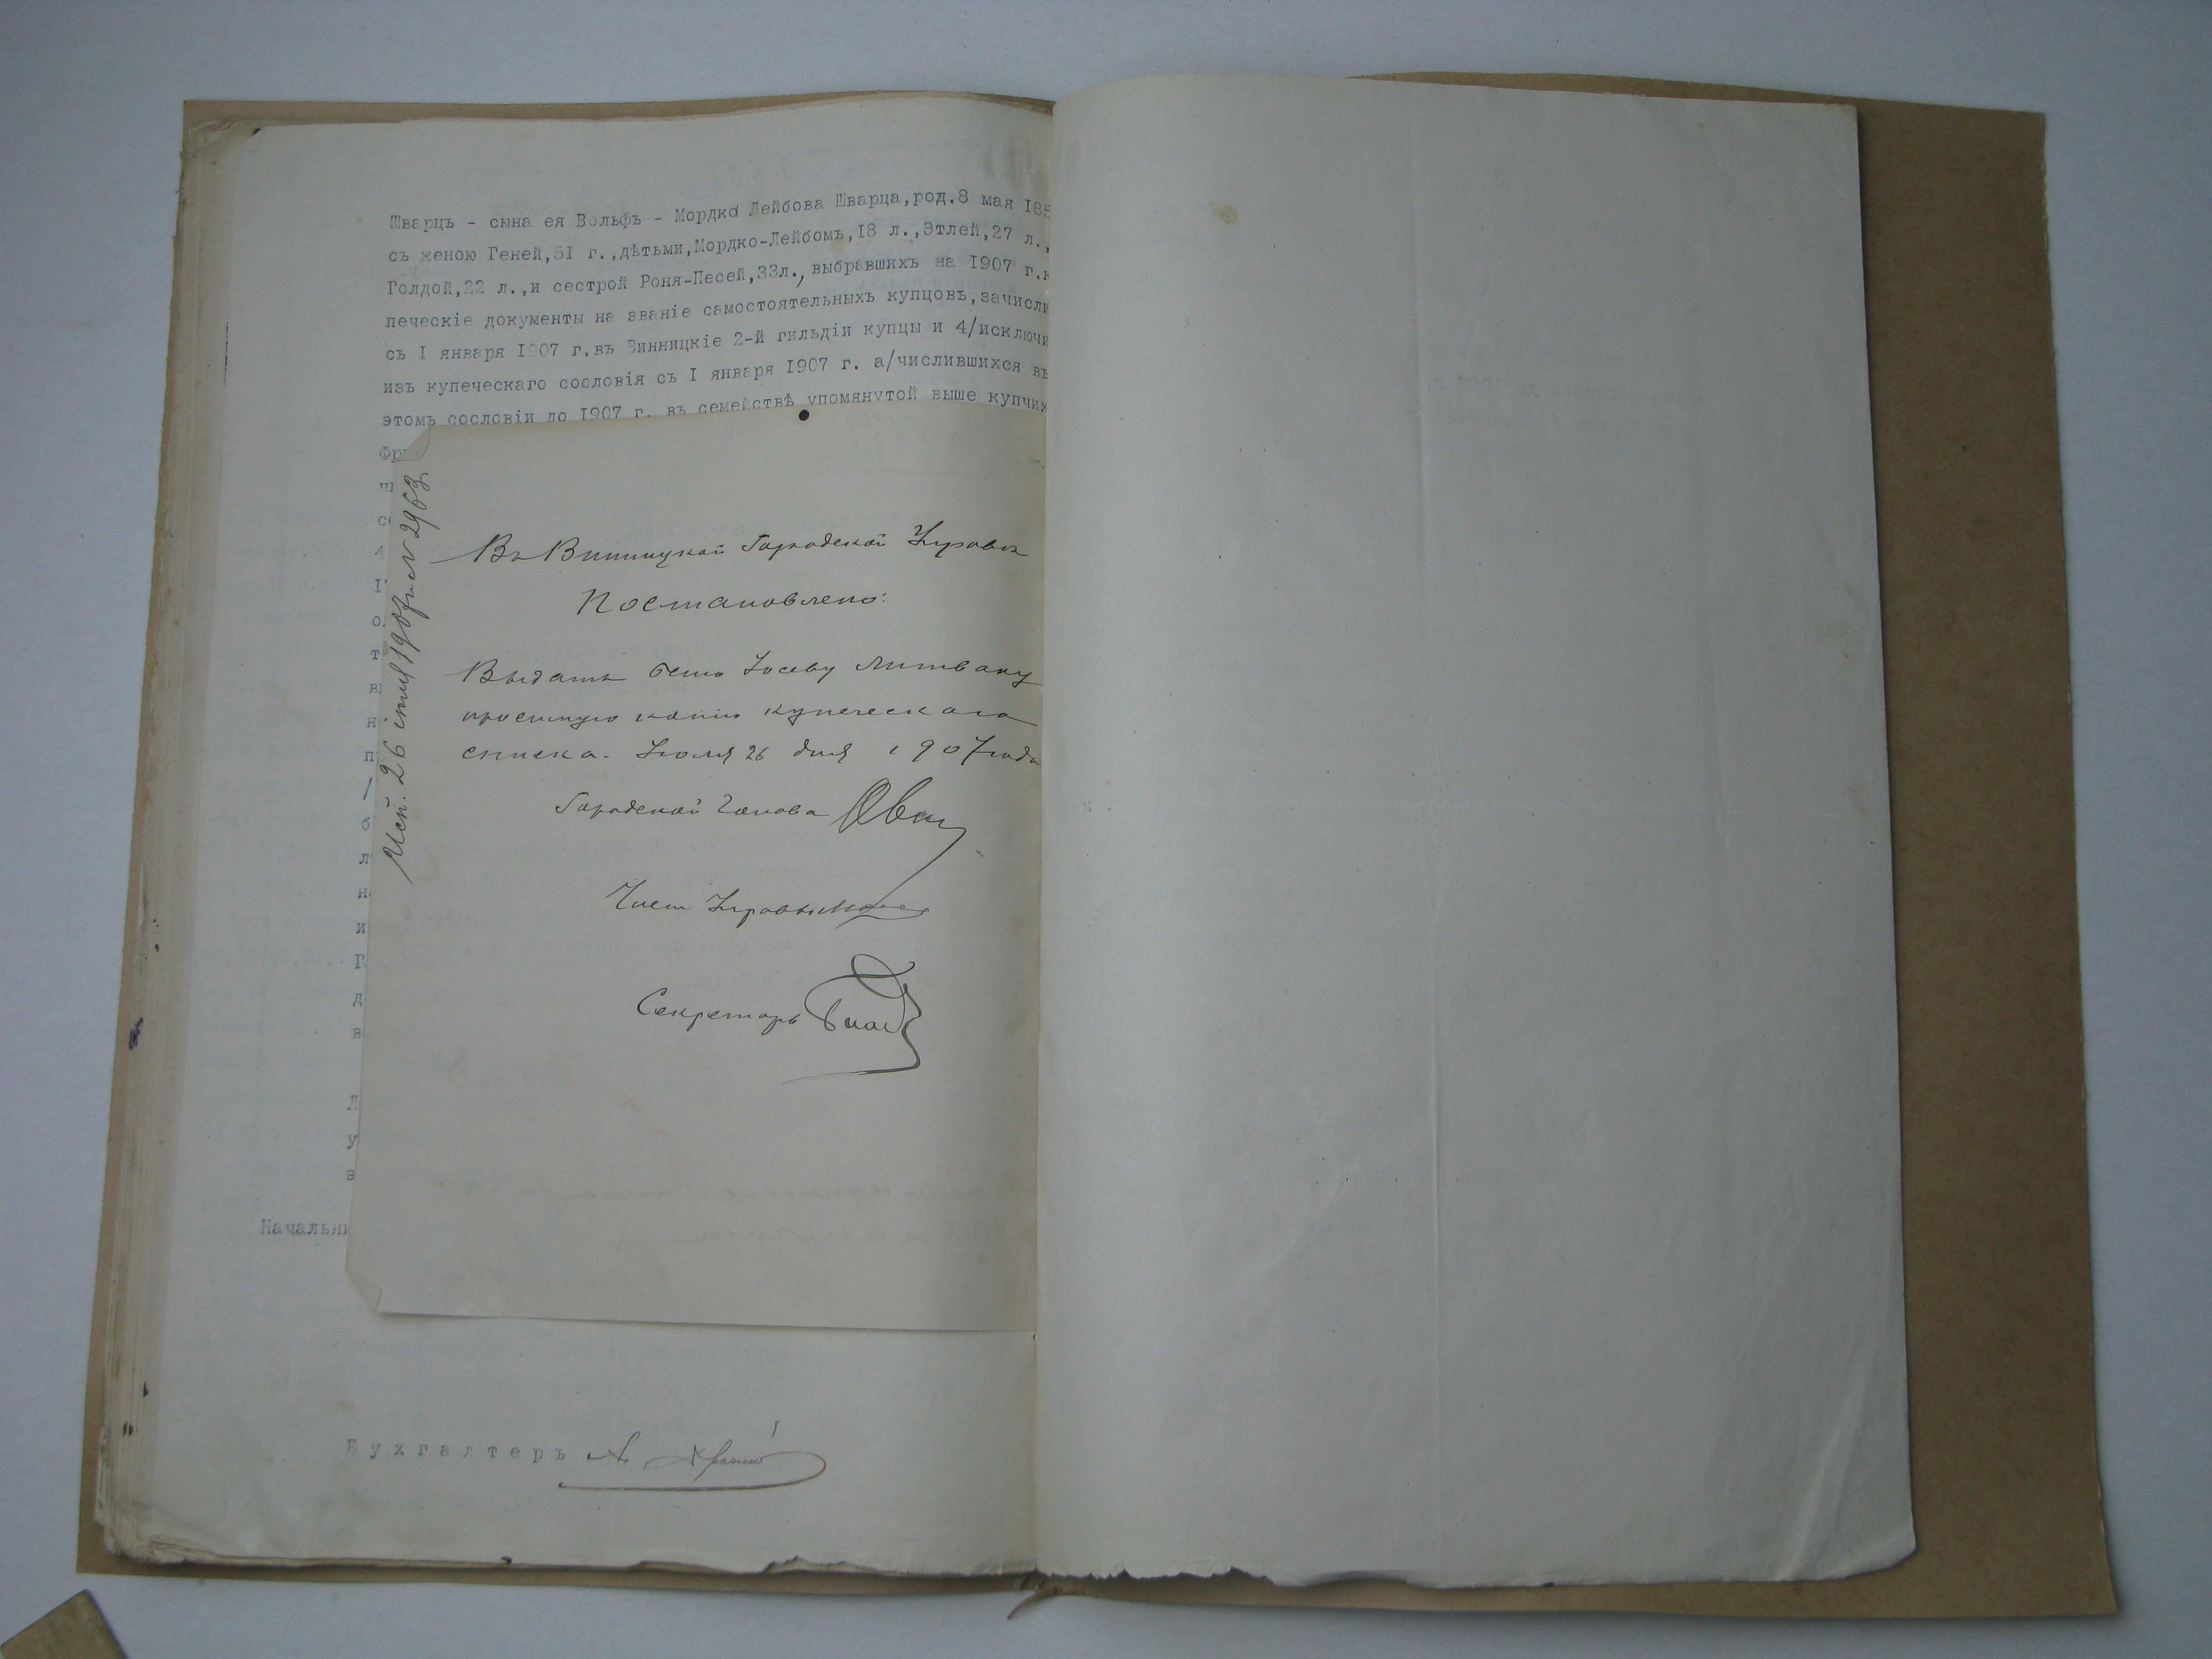 Шварцъ - сына ея Вольфъ - Мордко Лейбова Шварца, род. 8 мая 185
съ женою Геней, 51 г., дѣтьми, Мордко-Лейбомъ, 18 л., Этлей, 27 л.,
Голдой, 22 л., и сестрой Роня-Песей, 33л., выбравшихъ на 1907 г. к
печескіе документы на званіе самостоятельныхъ купцовъ, зачисли
съ I января 1907 г. въ Винницкіе 2-й гильдіи купцы и 4/исключи
изъ купеческаго сословія съ I января 1907 г. а/числившихся въ
этомъ сословіи до 1907 г. въ семействѣ упомянутой выше купчих
Фр
Исп. 26 іюля 1907 г. N 2963
Въ Винницкой Городской Управѣ
Постановлено:
Выдать Іосифу Литваку
простую копію купеческаго
списка. Іюля 26 дня 1907 года
Городской Голова
Членъ Управы
Секретарь
Начальни
Бухгалтеръ